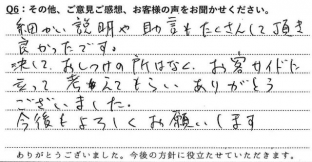 Q6：その他、ご意見ご感想、お客様の声をお聞かせください。
細かい説明や助言もたくさんして頂き
良かったです。
決して、おしつけの所はなく、お客サイドに
立って考えてもらいありがとう
ございました。
今後もよろしくお願いします
ありがとうございました。今後の方針に役立たせていただきます。